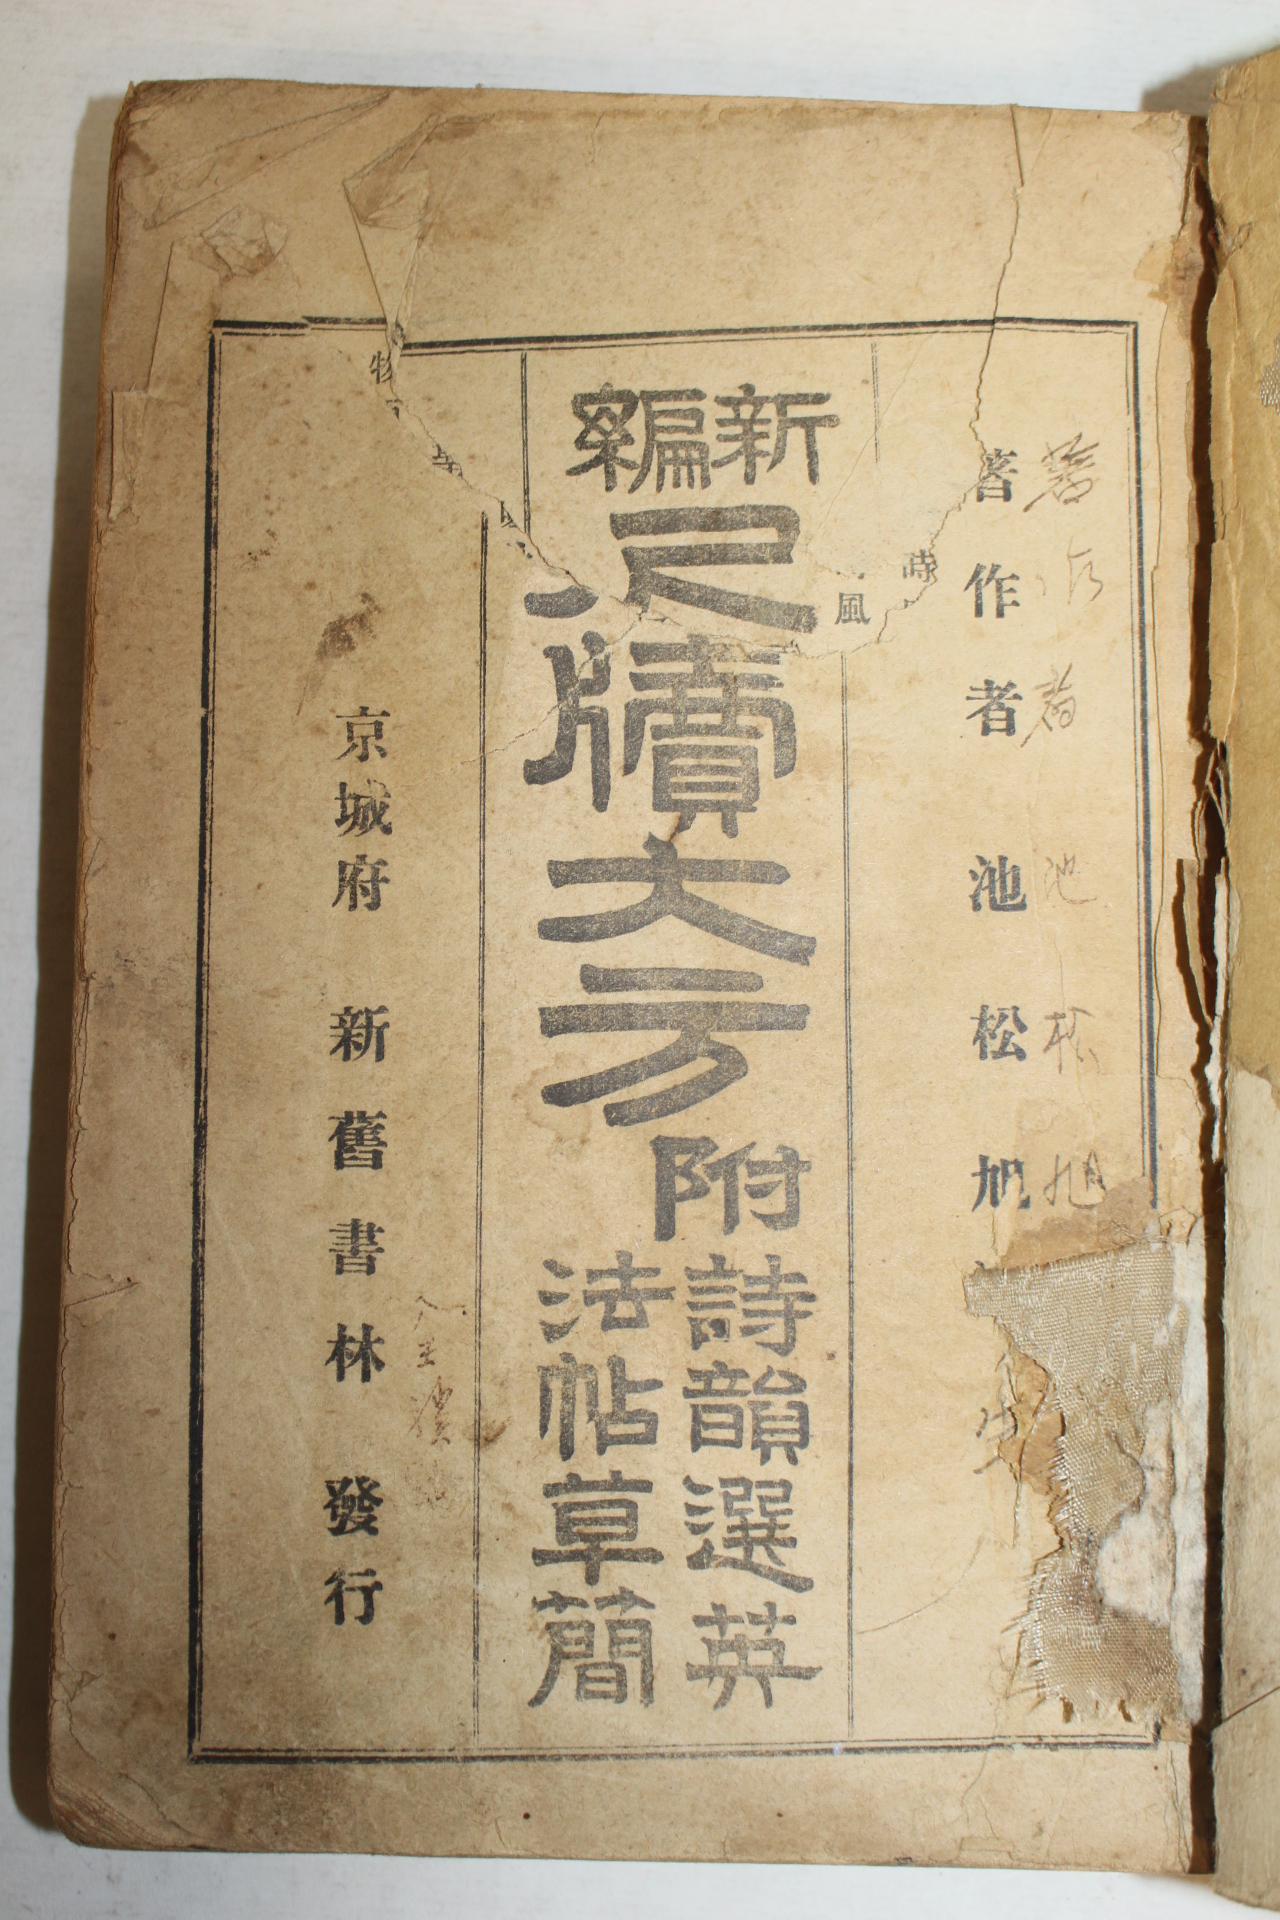 著作者 池松旭
著作者 池松旭
新編
尺牘大方
附
詩韻選英
法帖草簡
時
風
物
京城府 新舊書林 發行